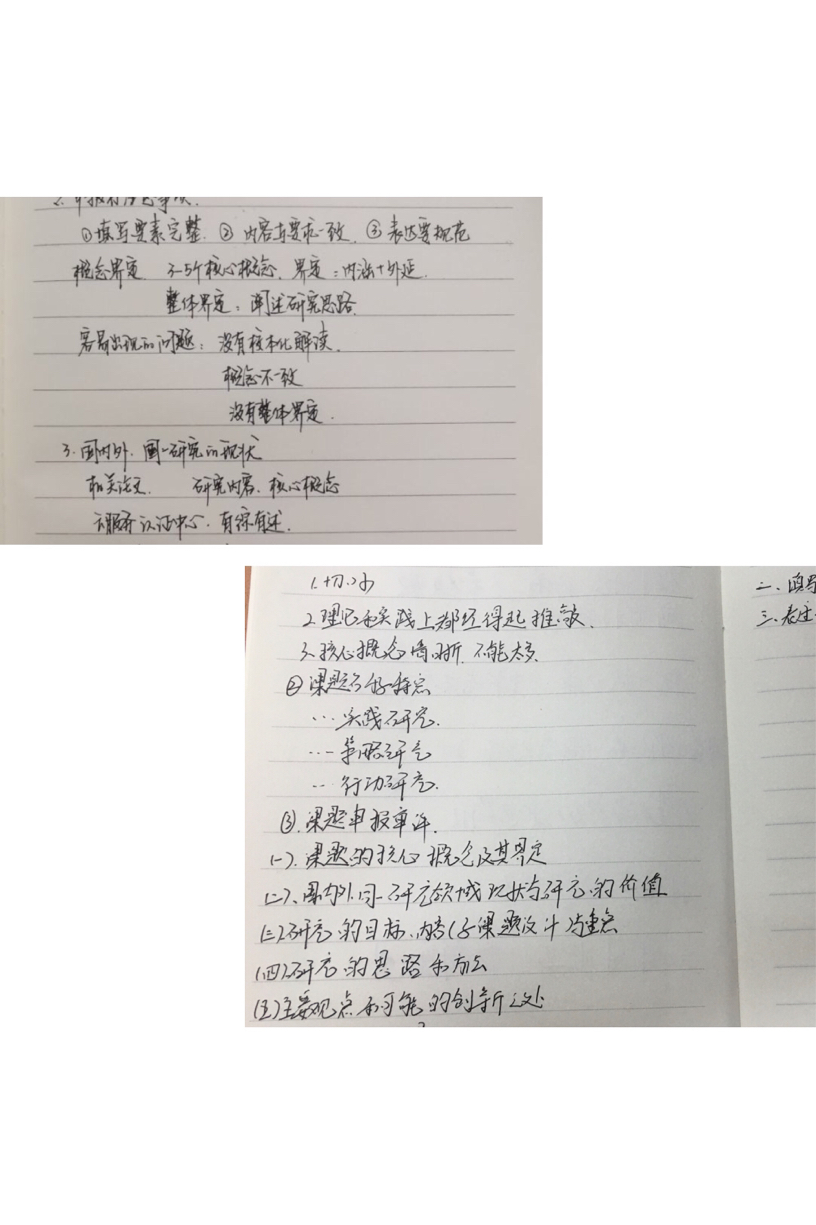 2. 申报注意事项.
①填写要素完整. ② 内容与要求一致. ③ 表达要规范
概念界定 3-5个核心概念. 界定:内涵+外延.
整体界定:阐述研究思路.
容易出现的问题:没有校本化解读.
概念不一致
没有整体界定.
3. 国内外.同一研究的现状
相关论文. 研究内容、核心概念
认证中心.有综有述.
1.切口小
2.理论和实践上都经得起推敲.
3.核心概念清晰.不能太多.
② 课题 特点
…实践研究.
…策略研究
…行动研究.
③.课题申报事项.
(一).课题的核心概念及其界定
(二).国内外同一研究领域现状与研究的价值
(三)研究的目标、内容(子课题设计)与重点
(四)研究的思路和方法
(五)主要观点和可能的创新之处
二、
三、